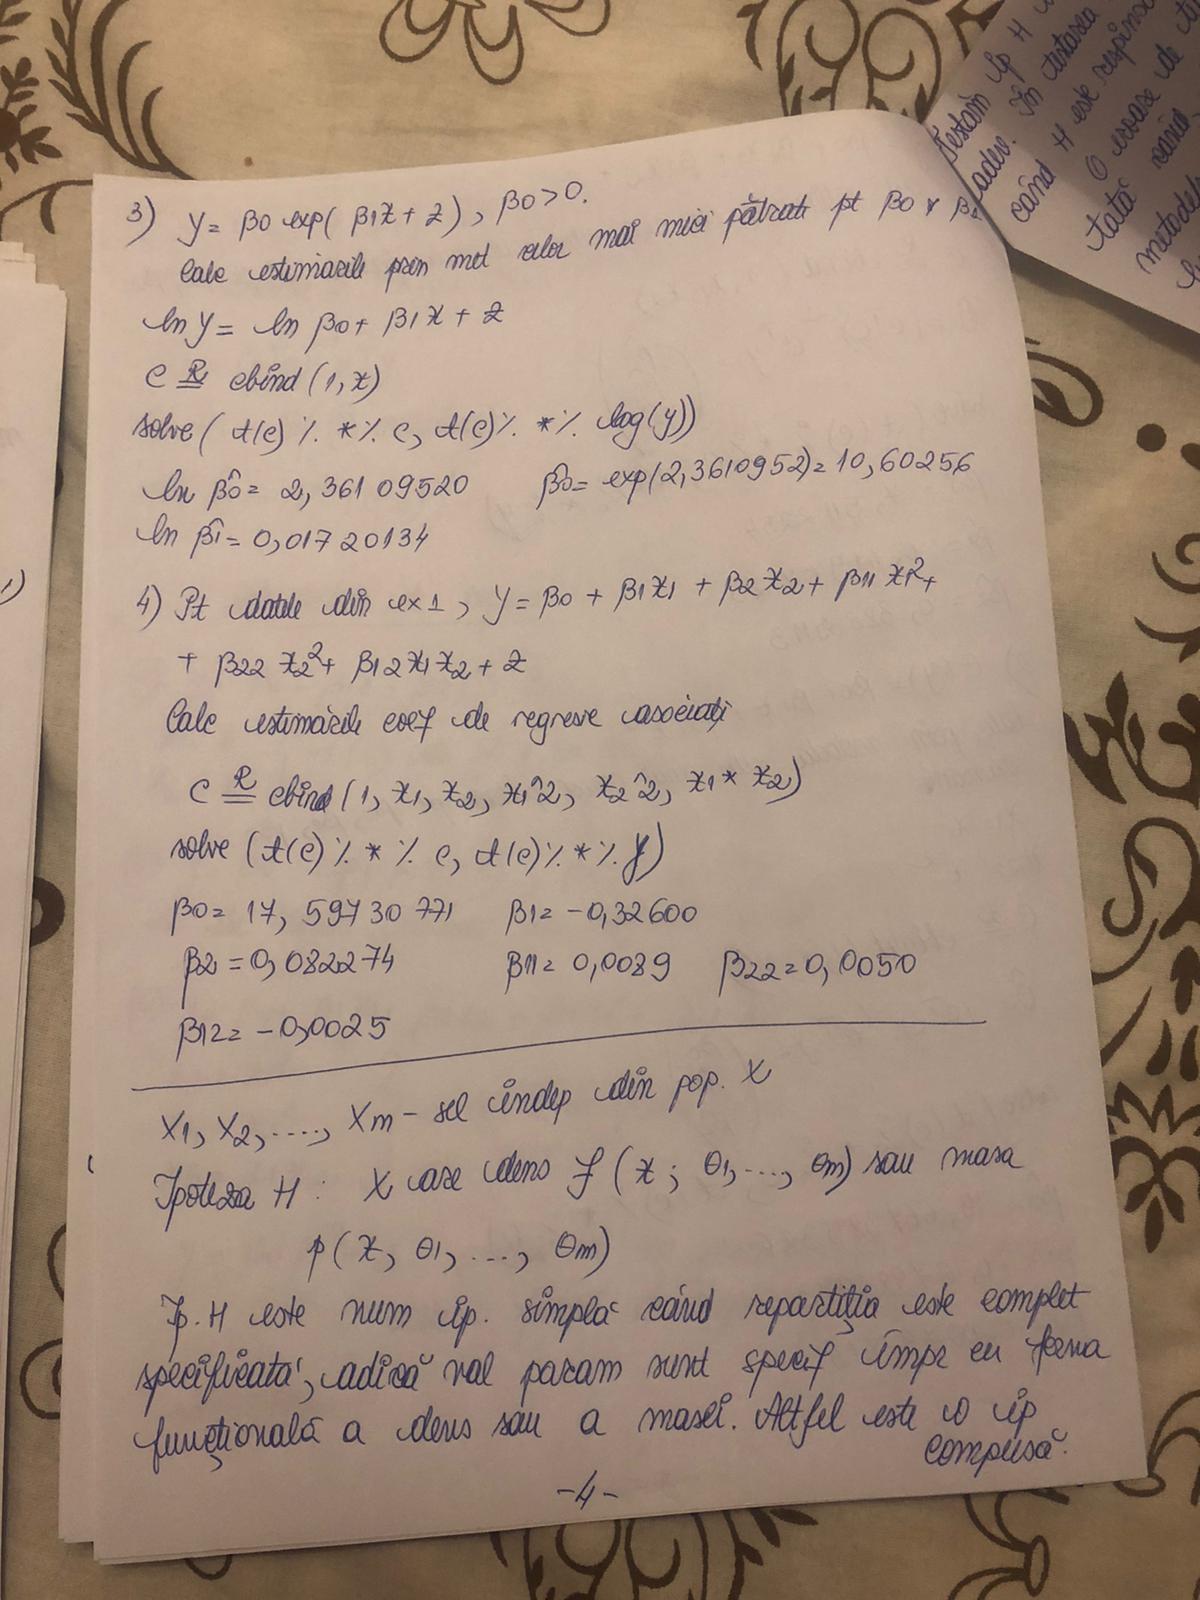 3) y = β0 exp(β1x + z), β0 > 0.
Calc estimările prin met celor mai mici pătrate pt β0 și β1
ln y = ln β0 + β1x + z
C R= cbind(1, x)
solve(t(c) %*% c, t(c) %*% log(y))
ln β̂0 = 2,3610 9520 β̂0 = exp(2,3610952) = 10,60256
ln β̂1 = 0,01720134
4) Pt datele din ex 1, y = β0 + β1x1 + β2x2 + β11x1² +
+ β22 x2² + β12x1x2 + z
Calc estimările coef de regresie asociați
C R= cbind(1, x1, x2, x1^2, x2^2, x1*x2)
solve(t(c) %*% c, t(c) %*% y)
β0 = 17,59730 771 β1 = -0,32600
β2 = 0,0822274 β11 = 0,0089 β22 = 0,0050
β12 = -0,0025
X1, X2, ...., Xm - sel indep din pop. X
Ipoteza H : X are dens f(x; θ1, ..., θm) sau masa
p(x, θ1, ..., θm)
Ip. H este num ip. simplă când repartiția este complet
specificată, adică val param sunt specif împr cu forma
funcțională a dens sau a masei. Altfel este o ip
compusă.
-4-
testăm ip H
adev. În testarea
când H este respinsă
O eroare de
tată când
metodel
1)